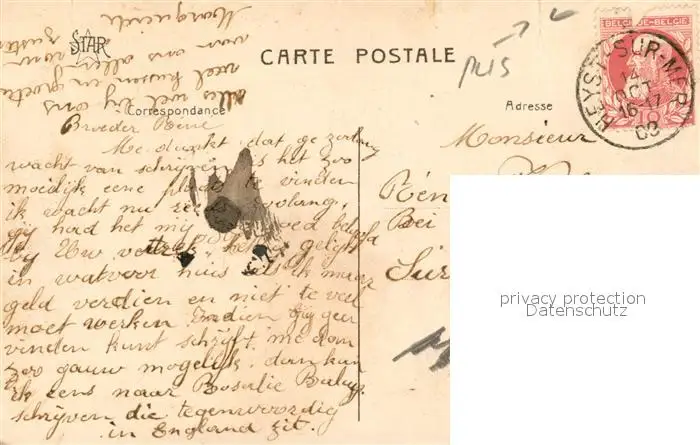 STAR
CARTE POSTALE
Correspondance
Adresse
BELGIQUE-BELGIË
HEYST-SUR-MER
14
OCT
16-17
Broeder René
Me dunkt dat ge zoolang
wacht van schrijven is het zoo
moeilijk eene plaats te vinden
ik wacht nu reeds zoolang,
gij had het mij goed beloofd
bij Uw vertrek, het is gelijk
in watvoor huis als ik maar
geld verdien en niet te veel
moet werken. Indien gij geen
vinden kunt schrijft me dan
zoo gauw mogelijk, dan kan
ik eens naar Rosalie
schrijven die tegenwoordig
in England zit.
Alles wel bij ons
veel kussen en groeten
van ons allen
zuster
Monsieur
privacy protection
Datenschutz